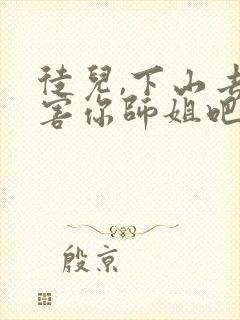 徒兒,下山去
害你師姐吧
殷京